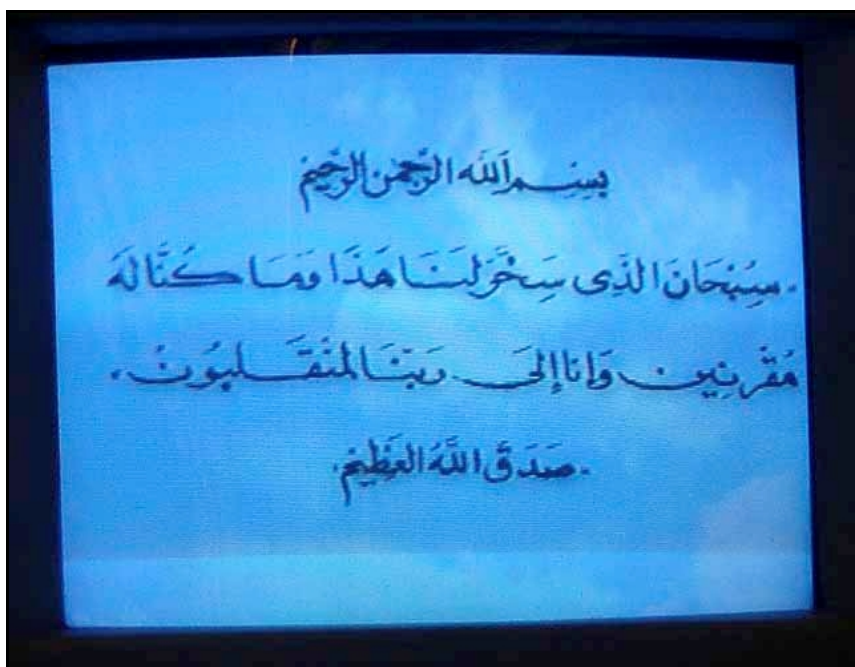 بِسْمِ اللَّه الرَّحمٰن الرَّحِيمْ
. سِبْحَانَ الَّذِى سِخَّرَ لَنَا هَذَا وَمَا كُنَّا لَهُ
مُقْرِنِين وَإنا إلَى رَبّنَا لَمُنْقَلِبُونْ .
. صَدَقَ اللَّهُ العَظِيمْ .